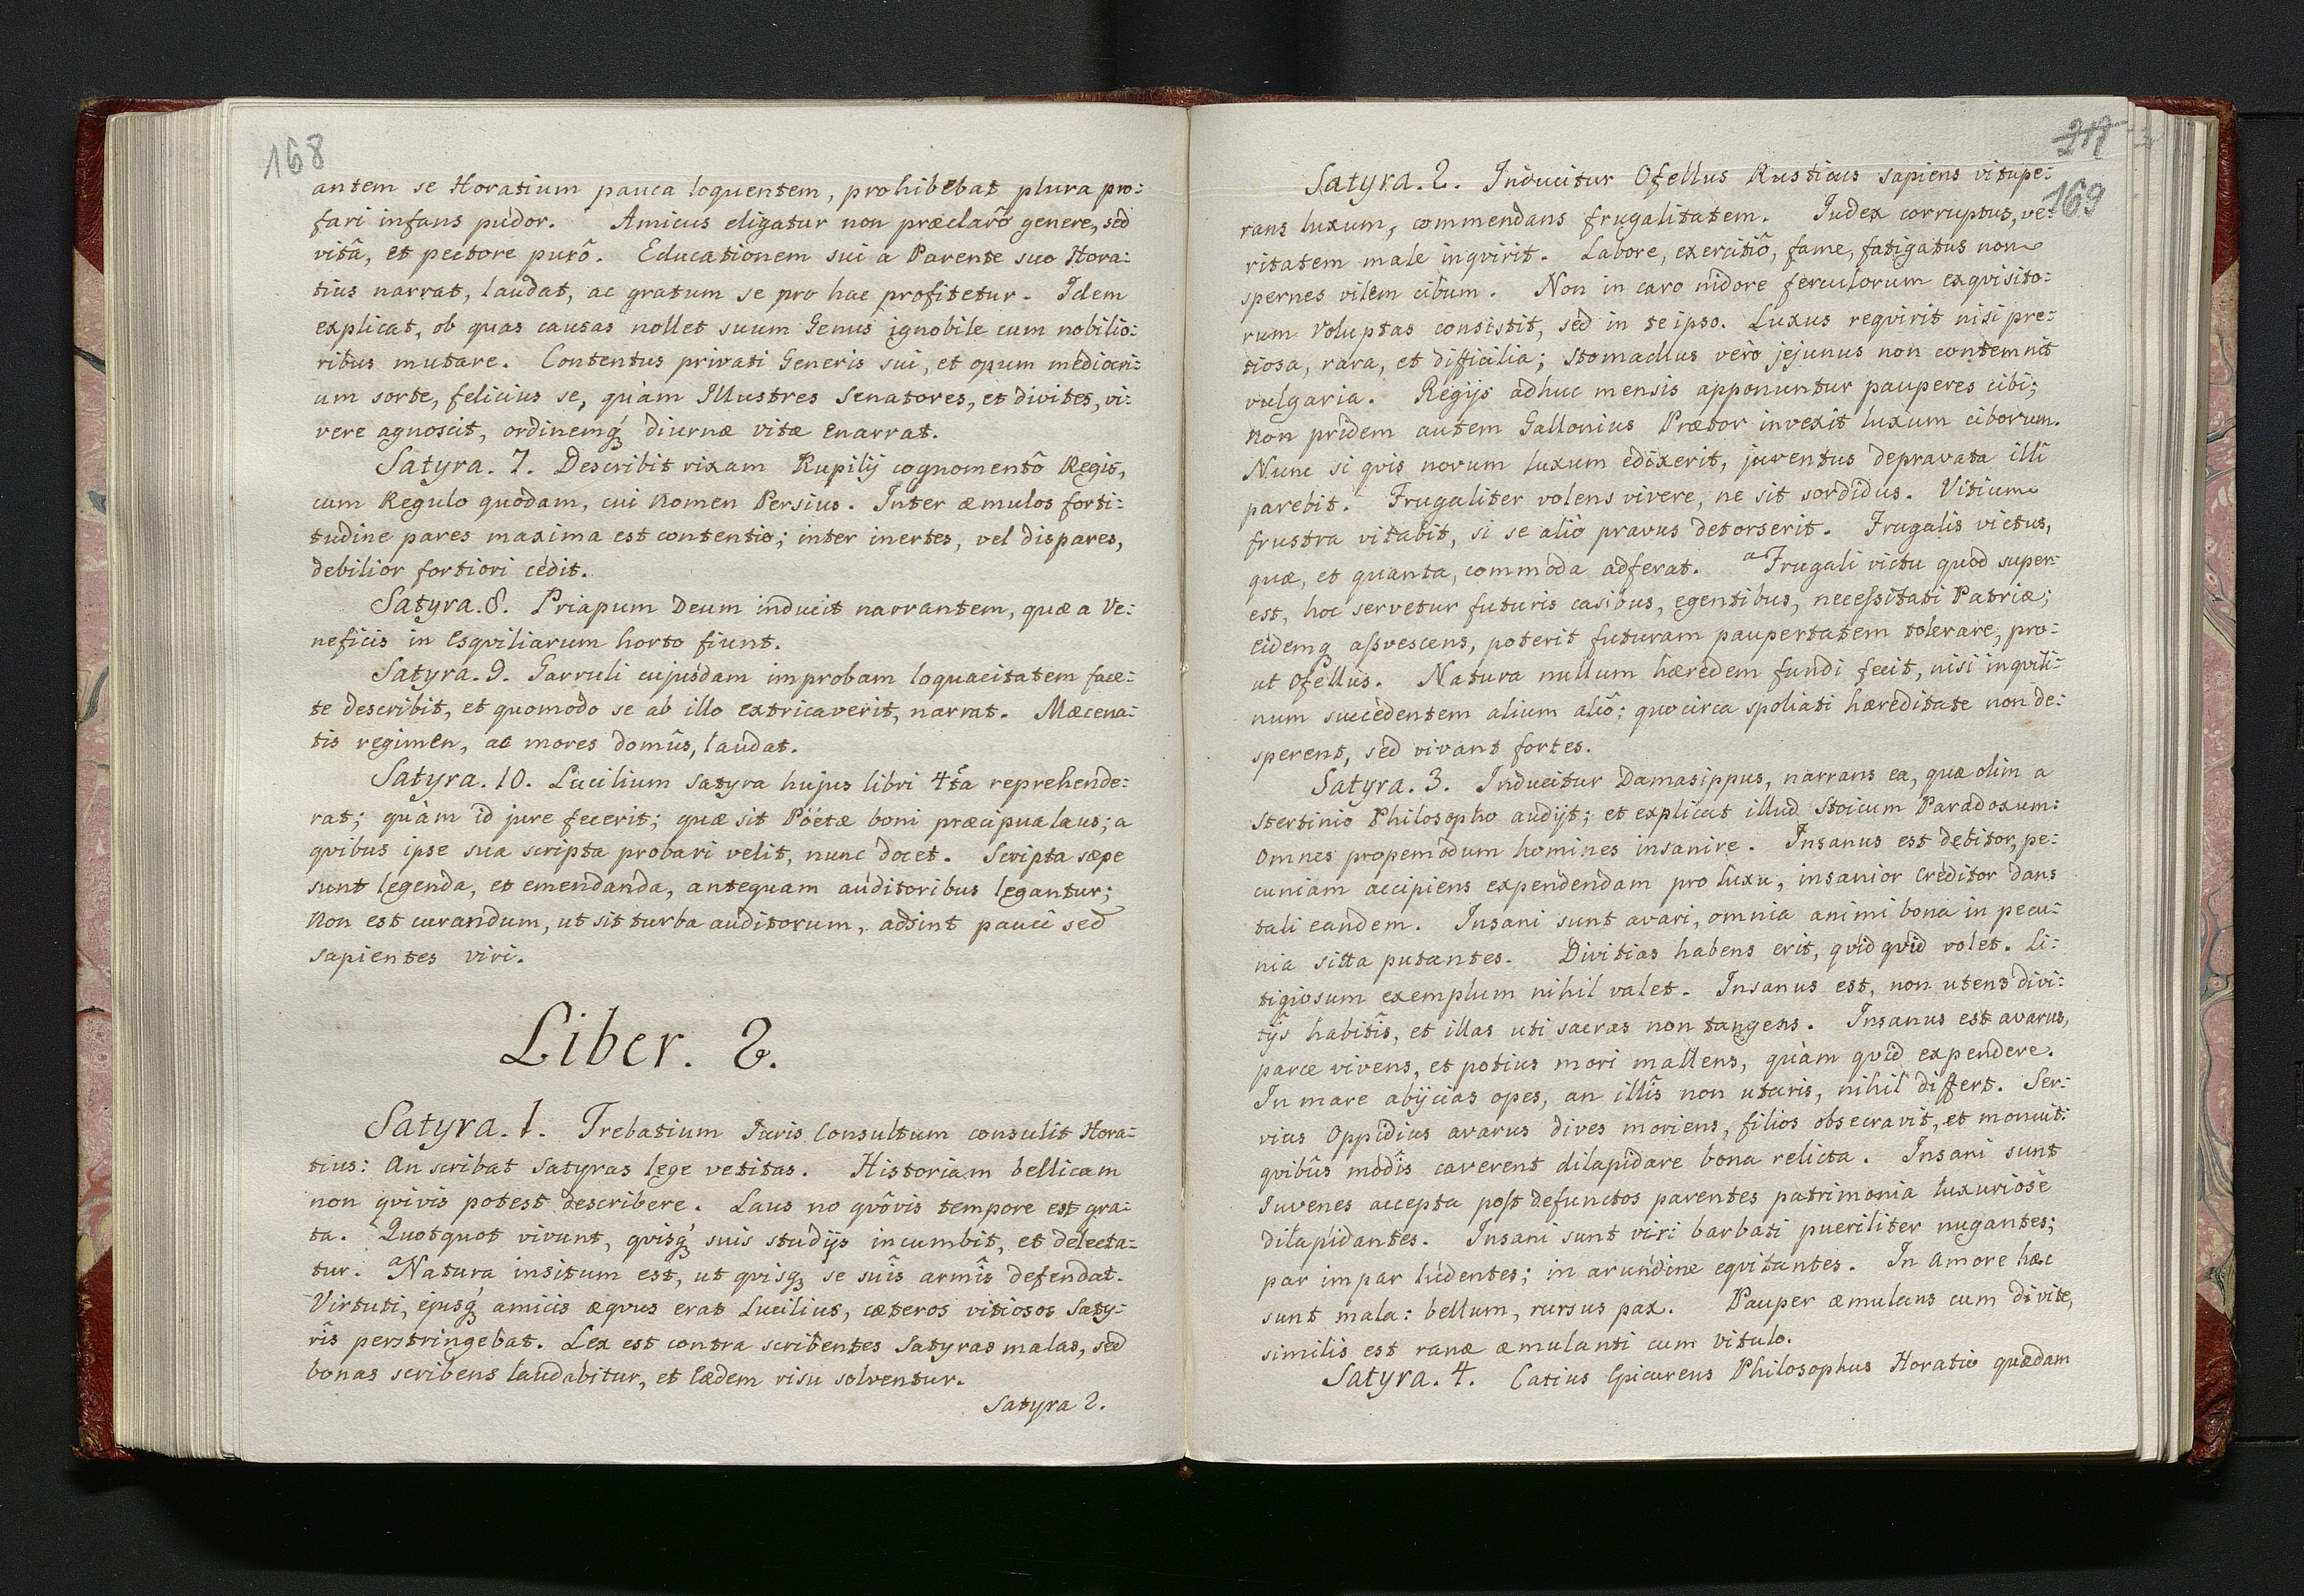 168
antem se Horatium pauca loquentem, prohibebat plura pro:
fari infans pudor. Amicus eligatur non præclarô genere, sed
vitâ, et pectore purô. Educationem sui a Parente suo Hora:
tius narrat, laudat, ac gratum se pro hac profitetur. Idem
explicat, ob quas causas nollet suum Genus ignobile cum nobilio:
ribus mutare. Contentus privati Generis sui, et opum mediocri:
um sorte, felicius se, quàm Illustres Senatores, et divites, vi:
vere agnoscit, ordinemq́ diurnæ vitæ enarrat.
Satyra. 7. Describit rixam Rupilij cognomentô Regis,
cum Regulo quodam, cui nomen Persius. Inter æmulos forti:
tudine pares maxima est contentio; inter inertes, vel dispares,
debilior fortiori cedit.
Satyra. 8. Priapum Deum inducit narrantem, quæ a Ve:
neficis in Esqviliarum horto fiunt.
Satyra. 9. Garruli cujusdam improbam loquacitatem face:
te describit, et quomodo se ab illo extricaverit, narrat. Mæcena:
tis regimen, ac mores domûs, laudat.
Satyra. 10. Lucilium Satyra hujus libri 4ta reprehende:
rat; quàm id jure fecerit; quæ sit Pöetæ boni præcipua laus; a
qvibus ipse sua scripta probari velit, nunc docet. Scripta sæpe
sunt legenda, et emendanda, antequam auditoribus legantur;
Non est curandum, ut sit turba auditorum, adsint pauci sed
sapientes viri.
Liber. 2.
Satyra. 1. Trebatium Juris Consultum consulit Hora:
tius: An scribat Satyras lege vetitas. Historiam bellicam
non qvivis potest describere. Laus no qvôvis tempore est gra:
ta. Quotquot vivunt, qvisq́ suis studijs incumbit, et delecta:
tur. aNatura insitum est, ut qvisq se suîs armîs defendat.
Virtuti, ejusq́ amicis æqvus erat Lucilius, cæteros vitiosos Saty:
rîs perstringebat. Lex est contra scribentes Satyras malas, sed
bonas scribens laudabitur, et Eædem risu solventur.
Satyra 2.
218
169
Satyra. 2. Inducitur Ofellus Rusticus sapiens vitupe:
rans luxum, commendans frugalitatem. Iudex corruptus, ve:
ritatem male inqvirit. Labore, exercitiô, fame, fatigatus non
spernes vilem cibum. Non in caro nidore ferculorum exqvisito:
rum Voluptas consistit, sed in te ipso. Luxus reqvirit nisi pre:
tiosa, rara, et difficilia; Stomachus verò jejunus non contemnit
vulgaria. Regijs adhuc mensis apponuntur pauperes cibi;
non pridem autem Gallonius Prætor invexit luxum ciborum.
Nunc si qvis novum luxum edixerit, juventus depravata illi
parebit. Frugaliter volens vivere, ne sit sordidus. Vitium
frustra vitabit, si se aliò pravus detorserit. Frugalis victus,
quæ, et quanta, commoda adferat. aFrugali victu quod super:
est, hoc servetur futuris casibus, egentibus, necessitati Patriæ;
eidemq assvescens, poterit futuram paupertatem tolerare, pro:
ut Ofellus. Natura nullum hæredem fundi fecit, nisi inqvili:
num succèdentem alium aliô; quocirca spoliati hæreditate non de:
sperent, sed vivant fortes.
Satyra. 3. Inducitur Damasippus, narrans ea, quæ olim a
Stertinio Philosopho audijt; et explicat illud Stoicum Paradoxum:
Omnes propemodum homines insanire. Insanus est debitor, pe:
cuniam accipiens expendendam pro luxu, insanior Creditor dans
tali eandem. Insani sunt avari, omnia animi bona in pecu:
nia sitta putantes. Divitias habens erit, qvid qvid volet. Li:
tigiosum exemplum nihil valet. Insanus est, non utens divi:
tijs habitîs, et illas uti sacras non tangens. Insanus est avarus,
parce vivens, et potius mori mallens, quàm qvid expendere.
In mare abijcias opes, an illîs non utaris, nihil differt. Ser:
vius Oppidius avarus dives moriens, filios obsecravit, et monuit:
qvibûs modîs caverent dilapidare bona relicta. Insani sunt
Iuvenes accepta post defunctos parentes patrimonia luxuriôse
dilapidantes. Insani sunt viri barbati pueriliter nugantes;
par impar ludentes; in arundine eqvitantes. In Amore hæc
sunt mala: bellum, rursus pax. Pauper æmulans cum divite,
similis est ranæ æmulanti cum vitulo.
Satyra. 4. Catius Epicureus Philosophus Horatio quædam